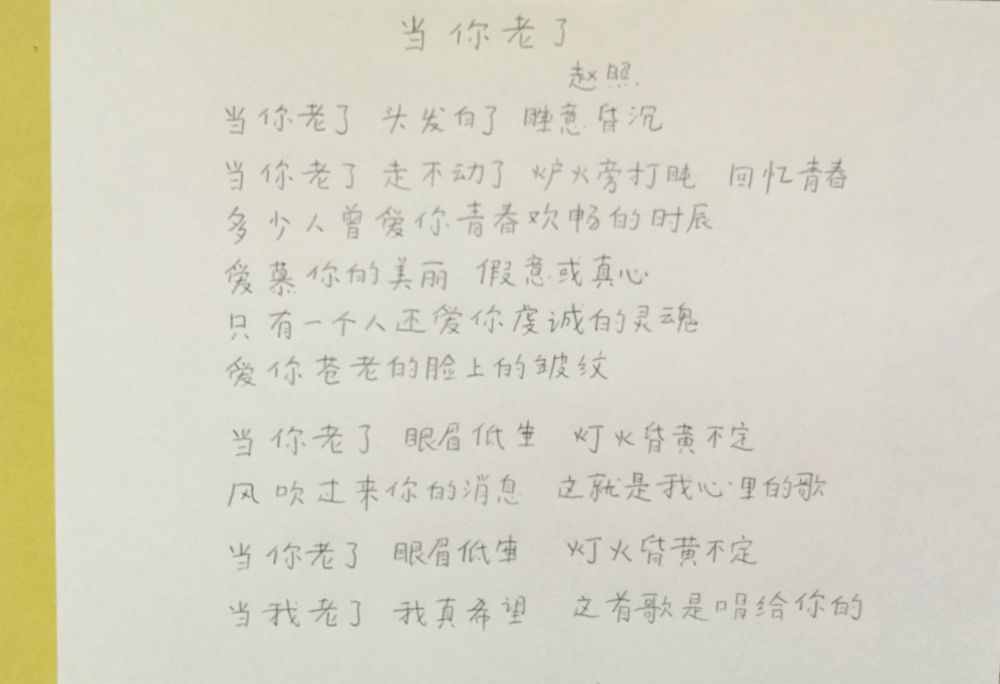 当你老了
赵照
当你老了 头发白了 睡意昏沉
当你老了 走不动了 炉火旁打盹 回忆青春
多少人曾爱你青春欢畅的时辰
爱慕你的美丽 假意或真心
只有一个人还爱你虔诚的灵魂
爱你苍老的脸上的皱纹
当你老了 眼眉低垂 灯火昏黄不定
风吹过来你的消息 这就是我心里的歌
当你老了 眼眉低垂 灯火昏黄不定
当我老了 我真希望 这首歌是唱给你的